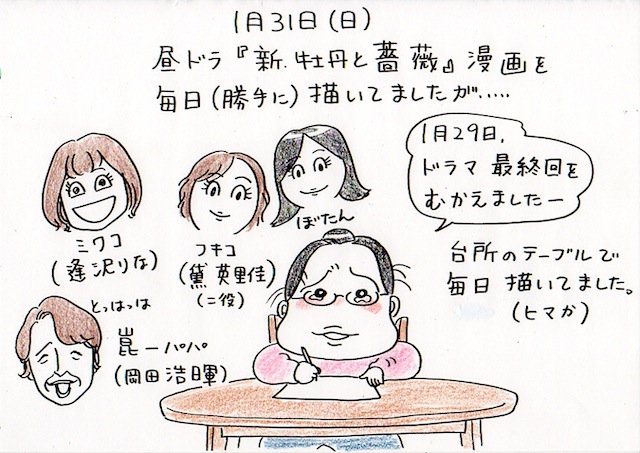 1月31日(日)
昼ドラ『新.牡丹と薔薇』漫画を
毎日(勝手に)描いてましたが.....
1月29日,
ドラマ 最終回を
むかえましたー
ミワコ
(逢沢りな)
フキコ
(黛 英里佳)
(二役)
ぼたん
台所のテーブルで
毎日 描いてました。
(ヒマか)
とっはっは
崑一パパ
(岡田浩暉)